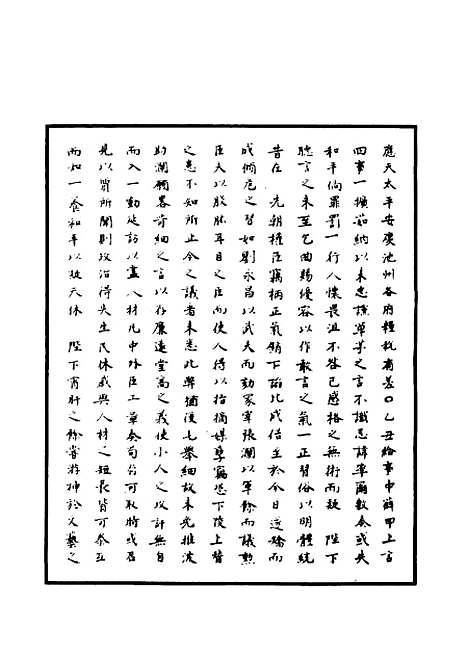 應天太平安慶池州各府糧稅有差○乙丑給事中薛甲上言
四事一擴茹納以来忠讜草茅之言不識忌諱寧爾數奏或失
和平倘罪罰一行人懷畏沮不咎已感格之無術而疑　陛下
聽言之未至乞曲賜優容以作敢言之氣一正習俗以明體統
昔在　先朝權臣竊柄正氣銷下諂此成俗至於今日遂矯而
成傾危之習如劉永昌以武夫而劾冢宰張瀾以軍餘而議勲
臣夫以股肱耳目之臣而使人得以指摘媒孽竊恐下陵上替
之患不知所止今之議者未悉此弊猶復毛舉細故未先推波
助瀾願畧苛細之言以存廉遠堂高之義使小人之攻訐無自
而入一勤延訪以盡人材凡中外臣工章奏苟有可取時或召
見以質所聞則政治得失生民休戚與人材之短長皆可参互
而知一養和平以敀天休　陛下宵旰之餘嘗游神於文藝之